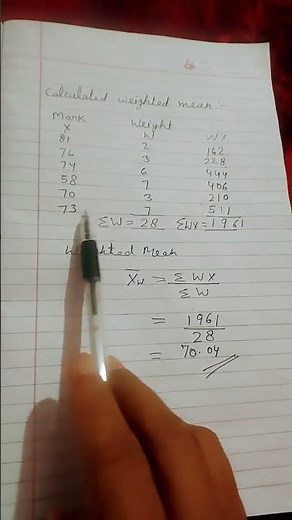 6
Calculated weighted mean :-
Mark Weight
X W WX
81 2 162
76 3 228
74 6 444
58 7 406
70 3 210
73 7 511
ΣW = 28 ΣWX = 1961
Weighted Mean
X̄w = ΣWX / ΣW
= 1961 / 28
= 70.04